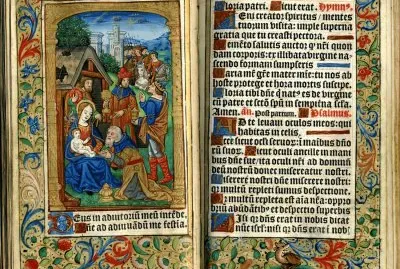 Deus in adiutoriũ meũ intẽde.
Dñe ad adiuvãdũ me festia.
Gloria patri. Sicut erat. Hymnus.
Veni creator spiritus / mentes
tuorum visita: imple superna
gratia que tu creasti pectora.
Memẽto salutis auctor qꝫ nr̃i quon
dam corporis: ex illibata virgine na
scendo formam sumpseris
Maria mr̃ gr̃e mater mie: tu nos ab
hoste protege et hora mortis suscipe.
Gloria tibi dñe q̃ nat⁹ es de virgine
cũ patre et sctõ spũ in sempitna secl'a.
Amen. añ. Post partum. Psalmus.
Ad te levavi oculos meos: qui
habitas in celis.
Ecce sicut ocl'i servoꝝ: ĩ manibus dñoꝝ
rũ suoꝝ. Sicut oculi ancille in mani
bus dñe sue: ita oculi nr̃i ad dominũ
deũ nostrũ donec misereatur nostri.
Miserere nostri dñe miserere nostri:
quia multũ repleti sumus despectione.
Quia multũ repleta est aĩa nr̃a: oppro
briũ abũdãtib⁹ et despectio superbis
Nisi qꝫ dñs erat in nobis dicat
nũc isrl': nisi qꝫ dñs erat ĩ nob'